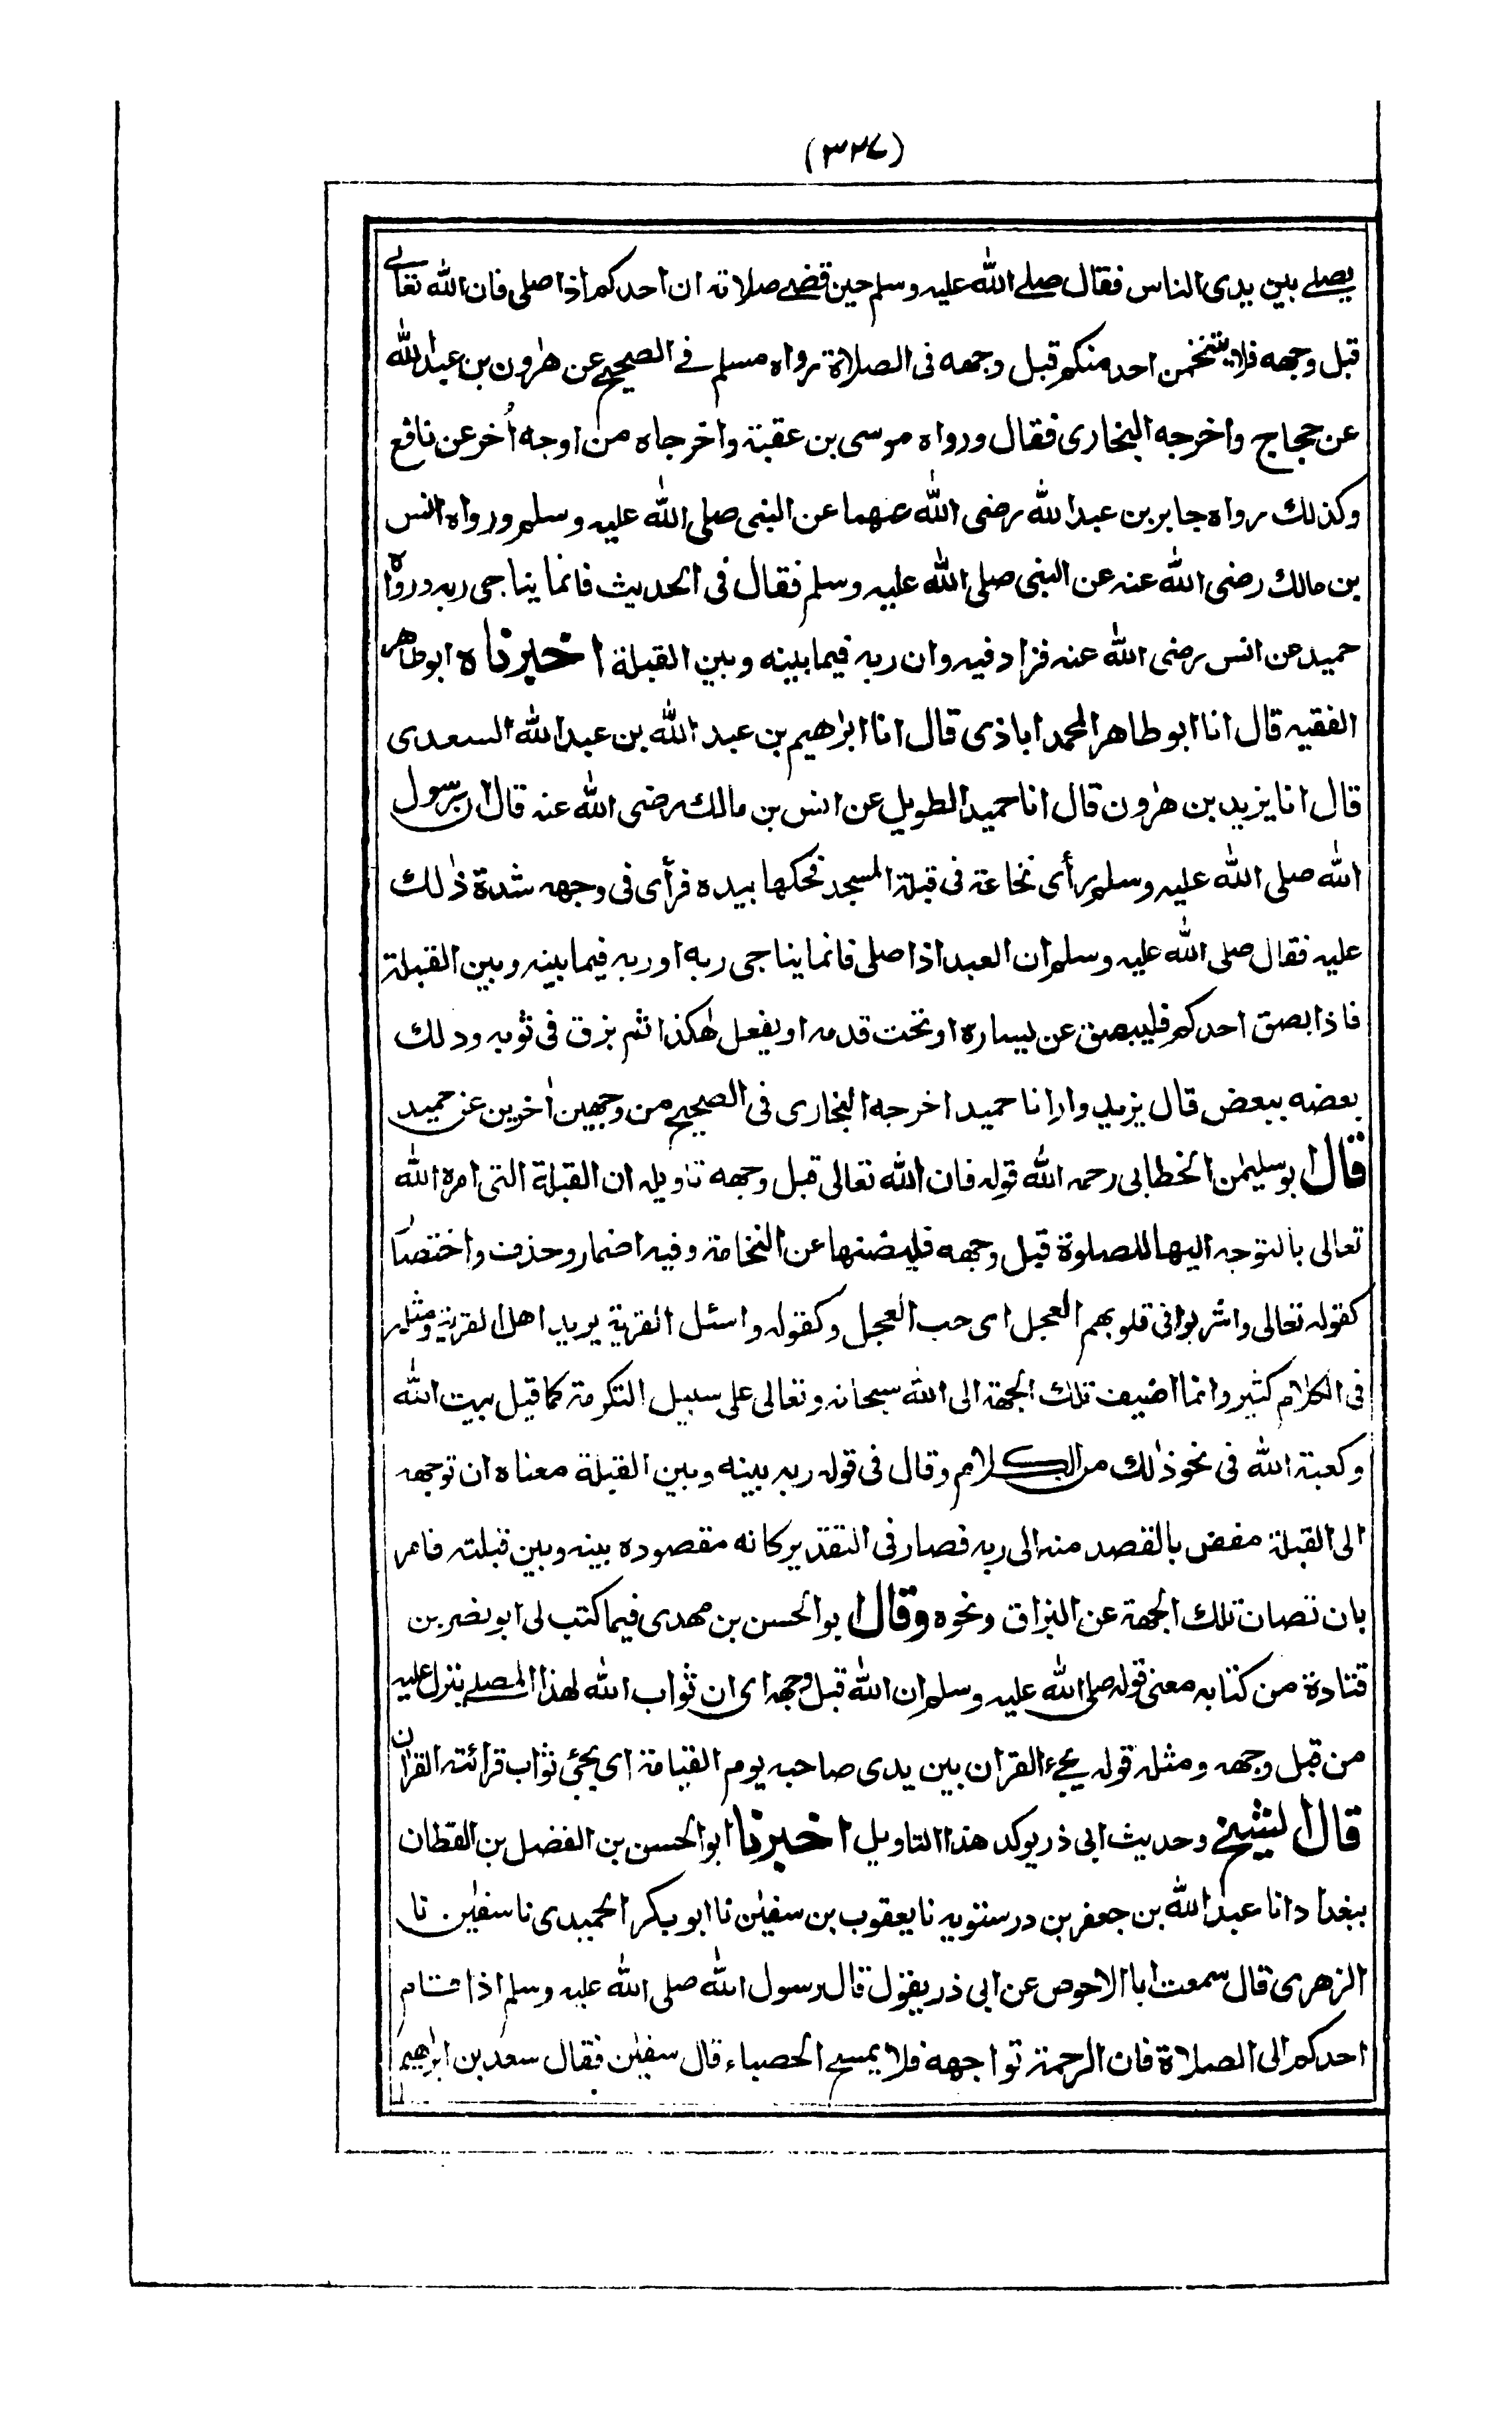 (٣٢٧)
يصلے بين يدى الناس فقال صلے الله عليه وسلم حين قضے صلاته ان احدكم اذا صلى فان الله تعالے
قبل وجهه فلا يتنخمن احد منكم قبل وجهه فى الصلاة رواه مسلم فے الصحيح عن هٰرون بن عبد الله
عن حجاج واخرجه البخارى فقال ورواه موسى بن عقبة واخرجاه من اوجه اُخر عن نافع
وكذلك رواه جابر بن عبد الله رضى الله عنهما عن النبى صلى الله عليه وسلم ورواه انس
بن مالك رضى الله عنه عن النبى صلى الله عليه وسلم فقال فى الحديث فانما يناجى ربه ورواه
حميد عن انس رضى الله عنه فزاد فيه وان ربه فيما بينه وبين القبلة اخبرناه ابو طاهر
الفقيه قال انا ابو طاهر المحمد اباذى قال انا ابرٰهيم بن عبد الله بن عبد الله السعدى
قال انا يزيد بن هٰرون قال انا حميد الطويل عن انس بن مالك رضى الله عنه قال ان رسول
الله صلى الله عليه وسلم رأى نخاعة فى قبلة المسجد فحكها بيده فرأى فى وجهه شدة ذٰلك
عليه فقال صلى الله عليه وسلم ان العبد اذا صلى فانما يناجى ربه او ربه فيما بينه وبين القبلة
فاذا بصق احدكم فليبصق عن يساره او تحت قدمه او يفعل هٰكذا ثم بزق فى ثوبه ودلك
بعضه ببعض قال يزيد وارانا حميد اخرجه البخارى فى الصحيح من وجهين اٰخرين عن حميد
قال ابو سليمٰن الخطابى رحمه الله قوله فان الله تعالى قبل وجهه تاويله ان القبلة التى امره الله
تعالى بالتوجه اليها للصلوة قبل وجهه فليصنها عن النخامة وفيه اضمار وحذف واختصار
كقوله تعالى واشربوا فى قلوبهم العجل اى حب العجل وكقوله واسئل القرية يريد اهل القرية ومثله
فى الكلام كثير وانما اضيف تلك الجهة الى الله سبحانه وتعالى على سبيل التكرمة كما قيل بيت الله
وكعبة الله فى نحو ذٰلك من الكلام وقال فى قوله ربه بينه وبين القبلة معناه ان توجهه
الى القبلة مفض بالقصد منه الى ربه فصار فى التقدير كانه مقصوده بينه وبين قبلته فامر
بان تصان تلك الجهة عن البزاق ونحوه وقال ابو الحسن بن مهدى فيما كتب لى ابو نصر بن
قتادة من كتابه معنى قوله صلى الله عليه وسلم ان الله قبل وجهه اى ان ثواب الله لهذا المصلے ينزل عليه
من قبل وجهه ومثله قوله يجىء القران بين يدى صاحبه يوم القيامة اى يجئ ثواب قرائته القران
قال الشيخ وحديث ابى ذر يوكد هذا التاويل اخبرنا ابو الحسن بن الفضل بن القطان
ببغداد انا عبد الله بن جعفر بن درستويه نا يعقوب بن سفيٰن نا ابو بكر الحميدى نا سفيٰن نا
الزهرى قال سمعت ابا الاحوص عن ابى ذر يقول قال رسول الله صلى الله عليه وسلم اذا قام
احدكم الى الصلاة فان الرحمة تواجهه فلا يمسح الحصباء قال سفيٰن فقال سعد بن ابرٰهيم